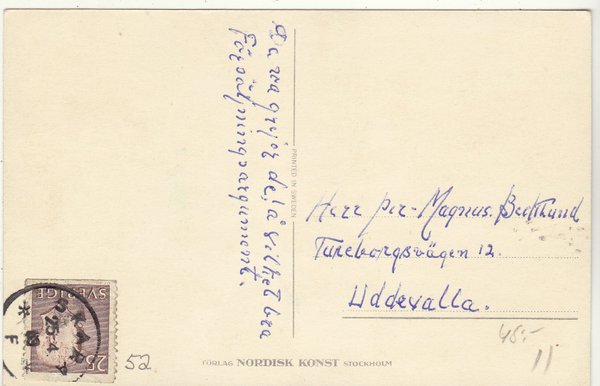 Du va grejor de, å vilket bra
Försäljningsargument.
PRINTED IN SWEDEN
Herr Per-Magnus. Becklund
Tureborgsvägen 12.
Uddevalla.
SVERIGE
25
SKARA
25-4
F
52
45:-
11
FÖRLAG NORDISK KONST STOCKHOLM